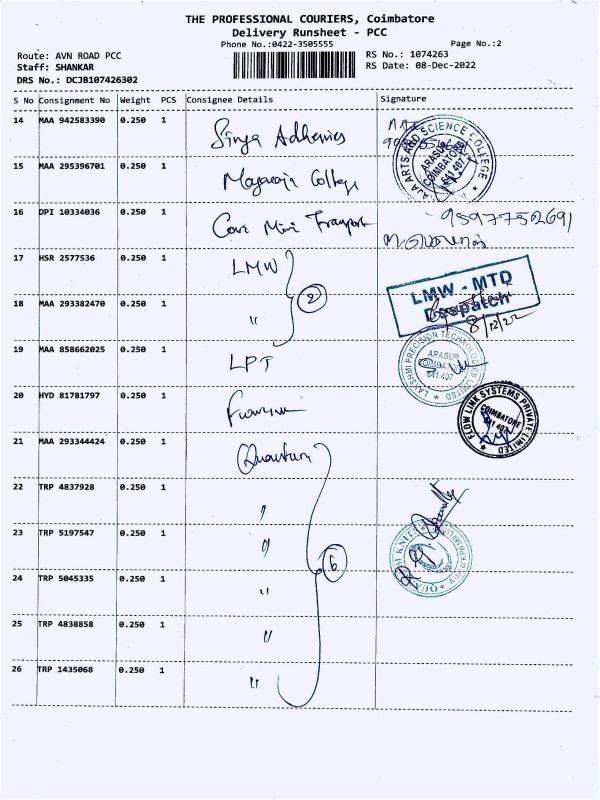 THE PROFESSIONAL COURIERS, Coimbatore
Delivery Runsheet - PCC
Phone No.:0422-3505555
Page No.:2
Route: AVN ROAD PCC
RS No.: 1074263
Staff: SHANKAR
RS Date: 08-Dec-2022
DRS No.: DCJB107426302
S No Consignment No Weight PCS Consignee Details Signature
14 MAA 942583390 0.250 1
15 MAA 295396701 0.250 1 College
ARTS AND SCIENCE COLLEGE
ARASUR
COIMBATORE
641 407
16 DPI 10334036 0.250 1 Mini Transport 9597752691
17 HSR 2577536 0.250 1 LMW
LMW - MTD
Despatch
8/12/22
18 MAA 293382470 0.250 1 " 2
19 MAA 858662025 0.250 1 LPT
LAKSHMI PRECISION TECHNOLOGIES LIMITED
ARASUR
641 407
20 HYD 81781797 0.250 1
FLOW LINK SYSTEMS PRIVATE LIMITED
COIMBATORE
641 407
21 MAA 293344424 0.250 1 Quantum
22 TRP 4837928 0.250 1 "
23 TRP 5197547 0.250 1 "
6
24 TRP 5045335 0.250 1 "
25 TRP 4838858 0.250 1 "
26 TRP 1435068 0.250 1 "